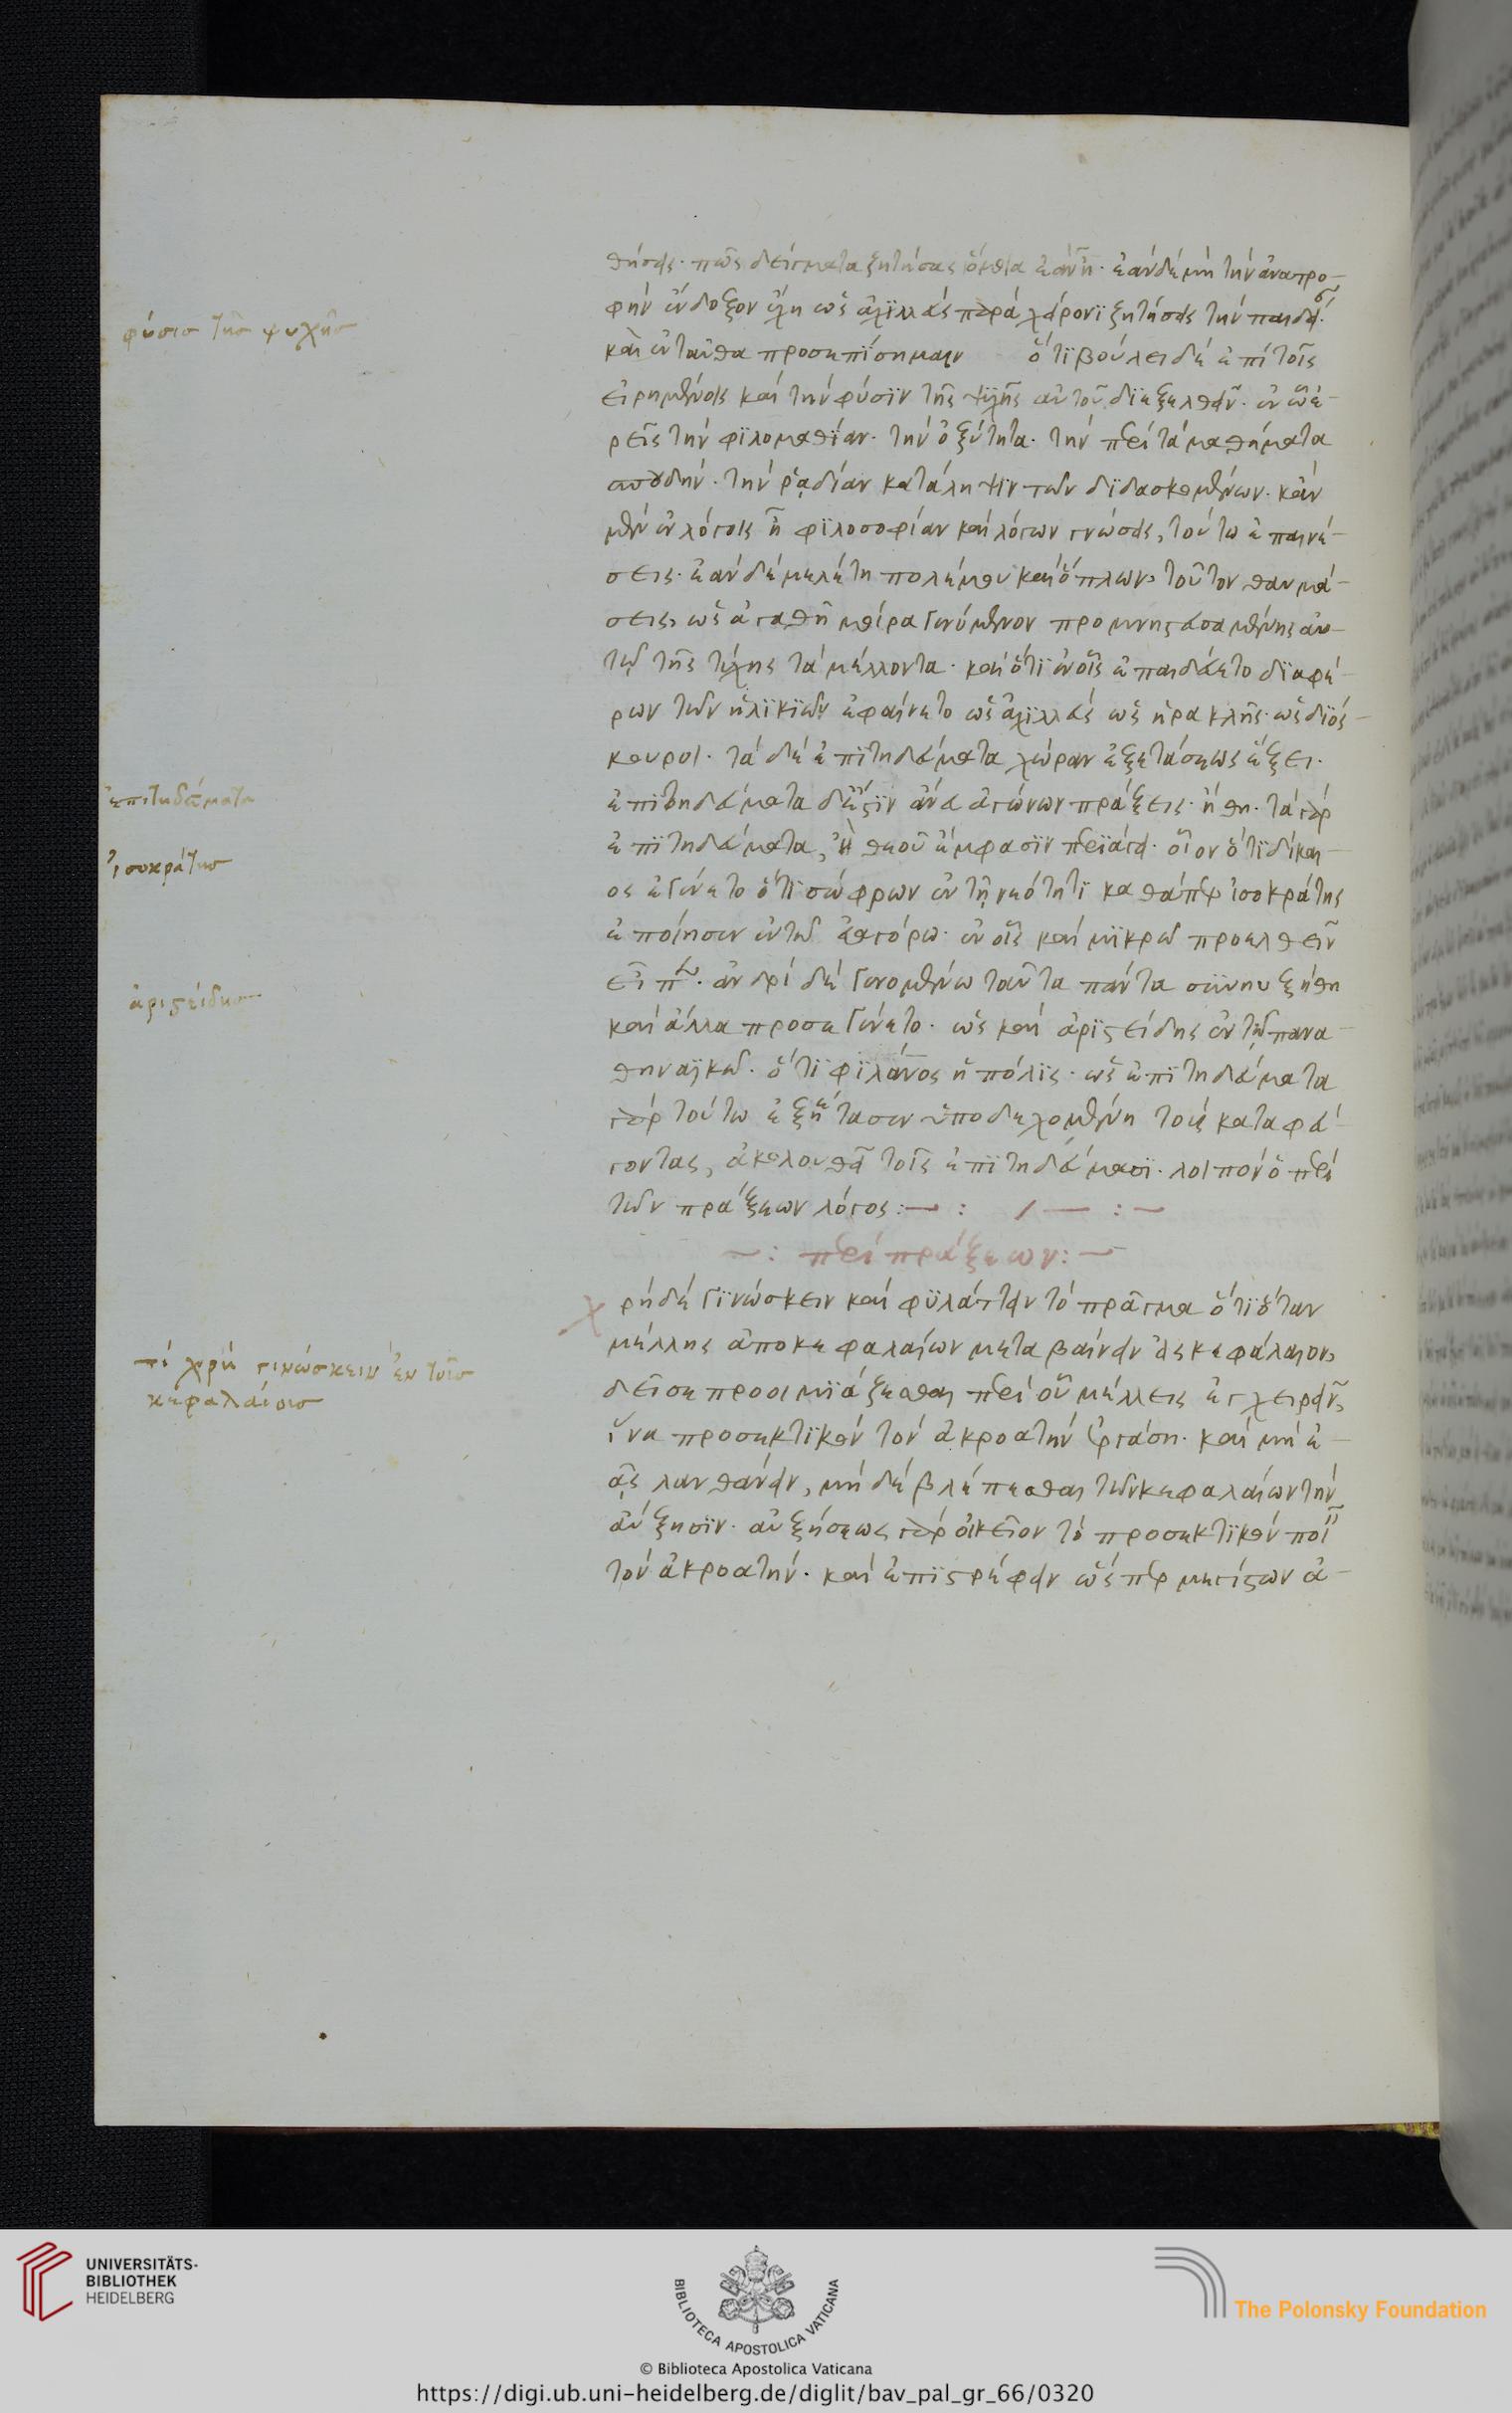 θήσεις. πῶς δείγματα ζητήσας ὄμφια ἐὰν ἦ. ἐὰν δὲ μὴ τὴν ἀνατρο-
φὴν ἔνδοξον ἔχη ὡς ἀχιλλεὺς παρὰ χείρονι ζητήσεις τὴν παιδεί.
καὶ ἐνταῦθα προσεπισημαιν ὅτι βούλει δὲ ἐπὶ τοῖς
εἰρημένοις καὶ τὴν φύσιν τῆς ψχῆς αὐτοῦ διεξελθεῖν. ἐν ὧ ἐ-
ρεῖς τὴν φιλομαθίαν. τὴν ὀξύτητα. τὴν περὶ τὰ μαθήματα
σπουδὴν. τὴν ῥαδίαν κατάληψιν τῶν διδασκομένων. κἂν
μὲν ἐν λόγοις ἦ φιλοσοφίαν καὶ λόγων γνώσεις, τοῦτο ἐπαινέ-
σεις. ἐὰν δὲ μελέτη πολέμου καὶ ὅπλων, τοῦτον θαυμά-
σεις, ὡς ἀγαθῆ μοίρα γενόμενον προμνηστευσαμένης αὐ-
τῶ τῆς τύχης τὰ μέλλοντα. καὶ ὅτι ἐν οἷς ἐπαιδεύετο διαφέ-
ρων τῶν ἡλικιῶν ἐφαίνετο ὡς ἀχιλλεὺς ὡς ἡρακλῆς. ὡς διός-
κουροι. τὰ δὲ ἐπιτηδεύματα χώραν ἐξετάσεως ἕξει.
ἐπιτηδεύματα δ' ἔστιν ἄνευ ἀγώνων πράξεις. ἤθη. τὰ γὰρ
ἐπιτηδεύματα, ἤθους ἔμφασιν περιάγει. οἷον ὅτι δίκαι-
ος ἐγένετο ὅτι σώφρων ἐν τῆ νεότητι καθάπερ ἰσοκράτης
ἐποίησεν ἐν τῶ εὐαγόρω. ἐν οἷς καὶ μικρῶ προελθεῖν
εἶπεν. ἀνδρὶ δὲ γενομένω ταῦτα πάντα συνηυξήθη
καὶ ἄλλα προσεγένετο. ὡς καὶ ἀριστείδης ἐν τῶ πανα-
θηναϊκῶ. ὅτι φιλάνος ἡ πόλις. ὡς ἐπιτηδεύματα
γὰρ τοῦτο ἐξήτασεν ὑποδεχομένη τοὺς καταφεύ-
γοντας, ἀκολουθεῖ τοῖς ἐπιτηδεύμασι. λοιπὸν ὁ περὶ
τῶν πράξεων λόγος:— : / — : —
—: περὶ πράξεων:—
χρὴ δὲ γινώσκειν καὶ φυλάττειν τὸ πρᾶγμα ὅτι ὅταν
μέλλης ἀπὸ κεφαλαίων μεταβαίνειν εἰς κεφάλαιον,
δεῖ σε προοιμιάζεσθαι περὶ οὗ μέλλεις ἐγχειρεῖν,
ἵνα προσεκτικὸν τὸν ἀκροατὴν ἐργάση. καὶ μὴ ἐ-
ᾶς λανθάνειν, μὴ δὲ βλέπεσθαι τῶν κεφαλαίων τὴν
αὔξησιν. αὐξήσεως γὰρ οἰκεῖον τὸ προσεκτικὸν ποι
τὸν ἀκροατὴν. καὶ ἐπιστρέφειν ὥσπερ μεγίστων ἀ-
φύσισ τῆσ ψυχῆσ
ἐπιτηδεύματα
ἰσοκράτησ
ἀριστείδησ
τί χρὴ γινώσκειν ἐν τοῖσ
κεφαλαίοισ
UNIVERSITÄTS-
BIBLIOTHEK
HEIDELBERG
BIBLIOTECA APOSTOLICA VATICANA
© Biblioteca Apostolica Vaticana
The Polonsky Foundation
https://digi.ub.uni-heidelberg.de/diglit/bav_pal_gr_66/0320